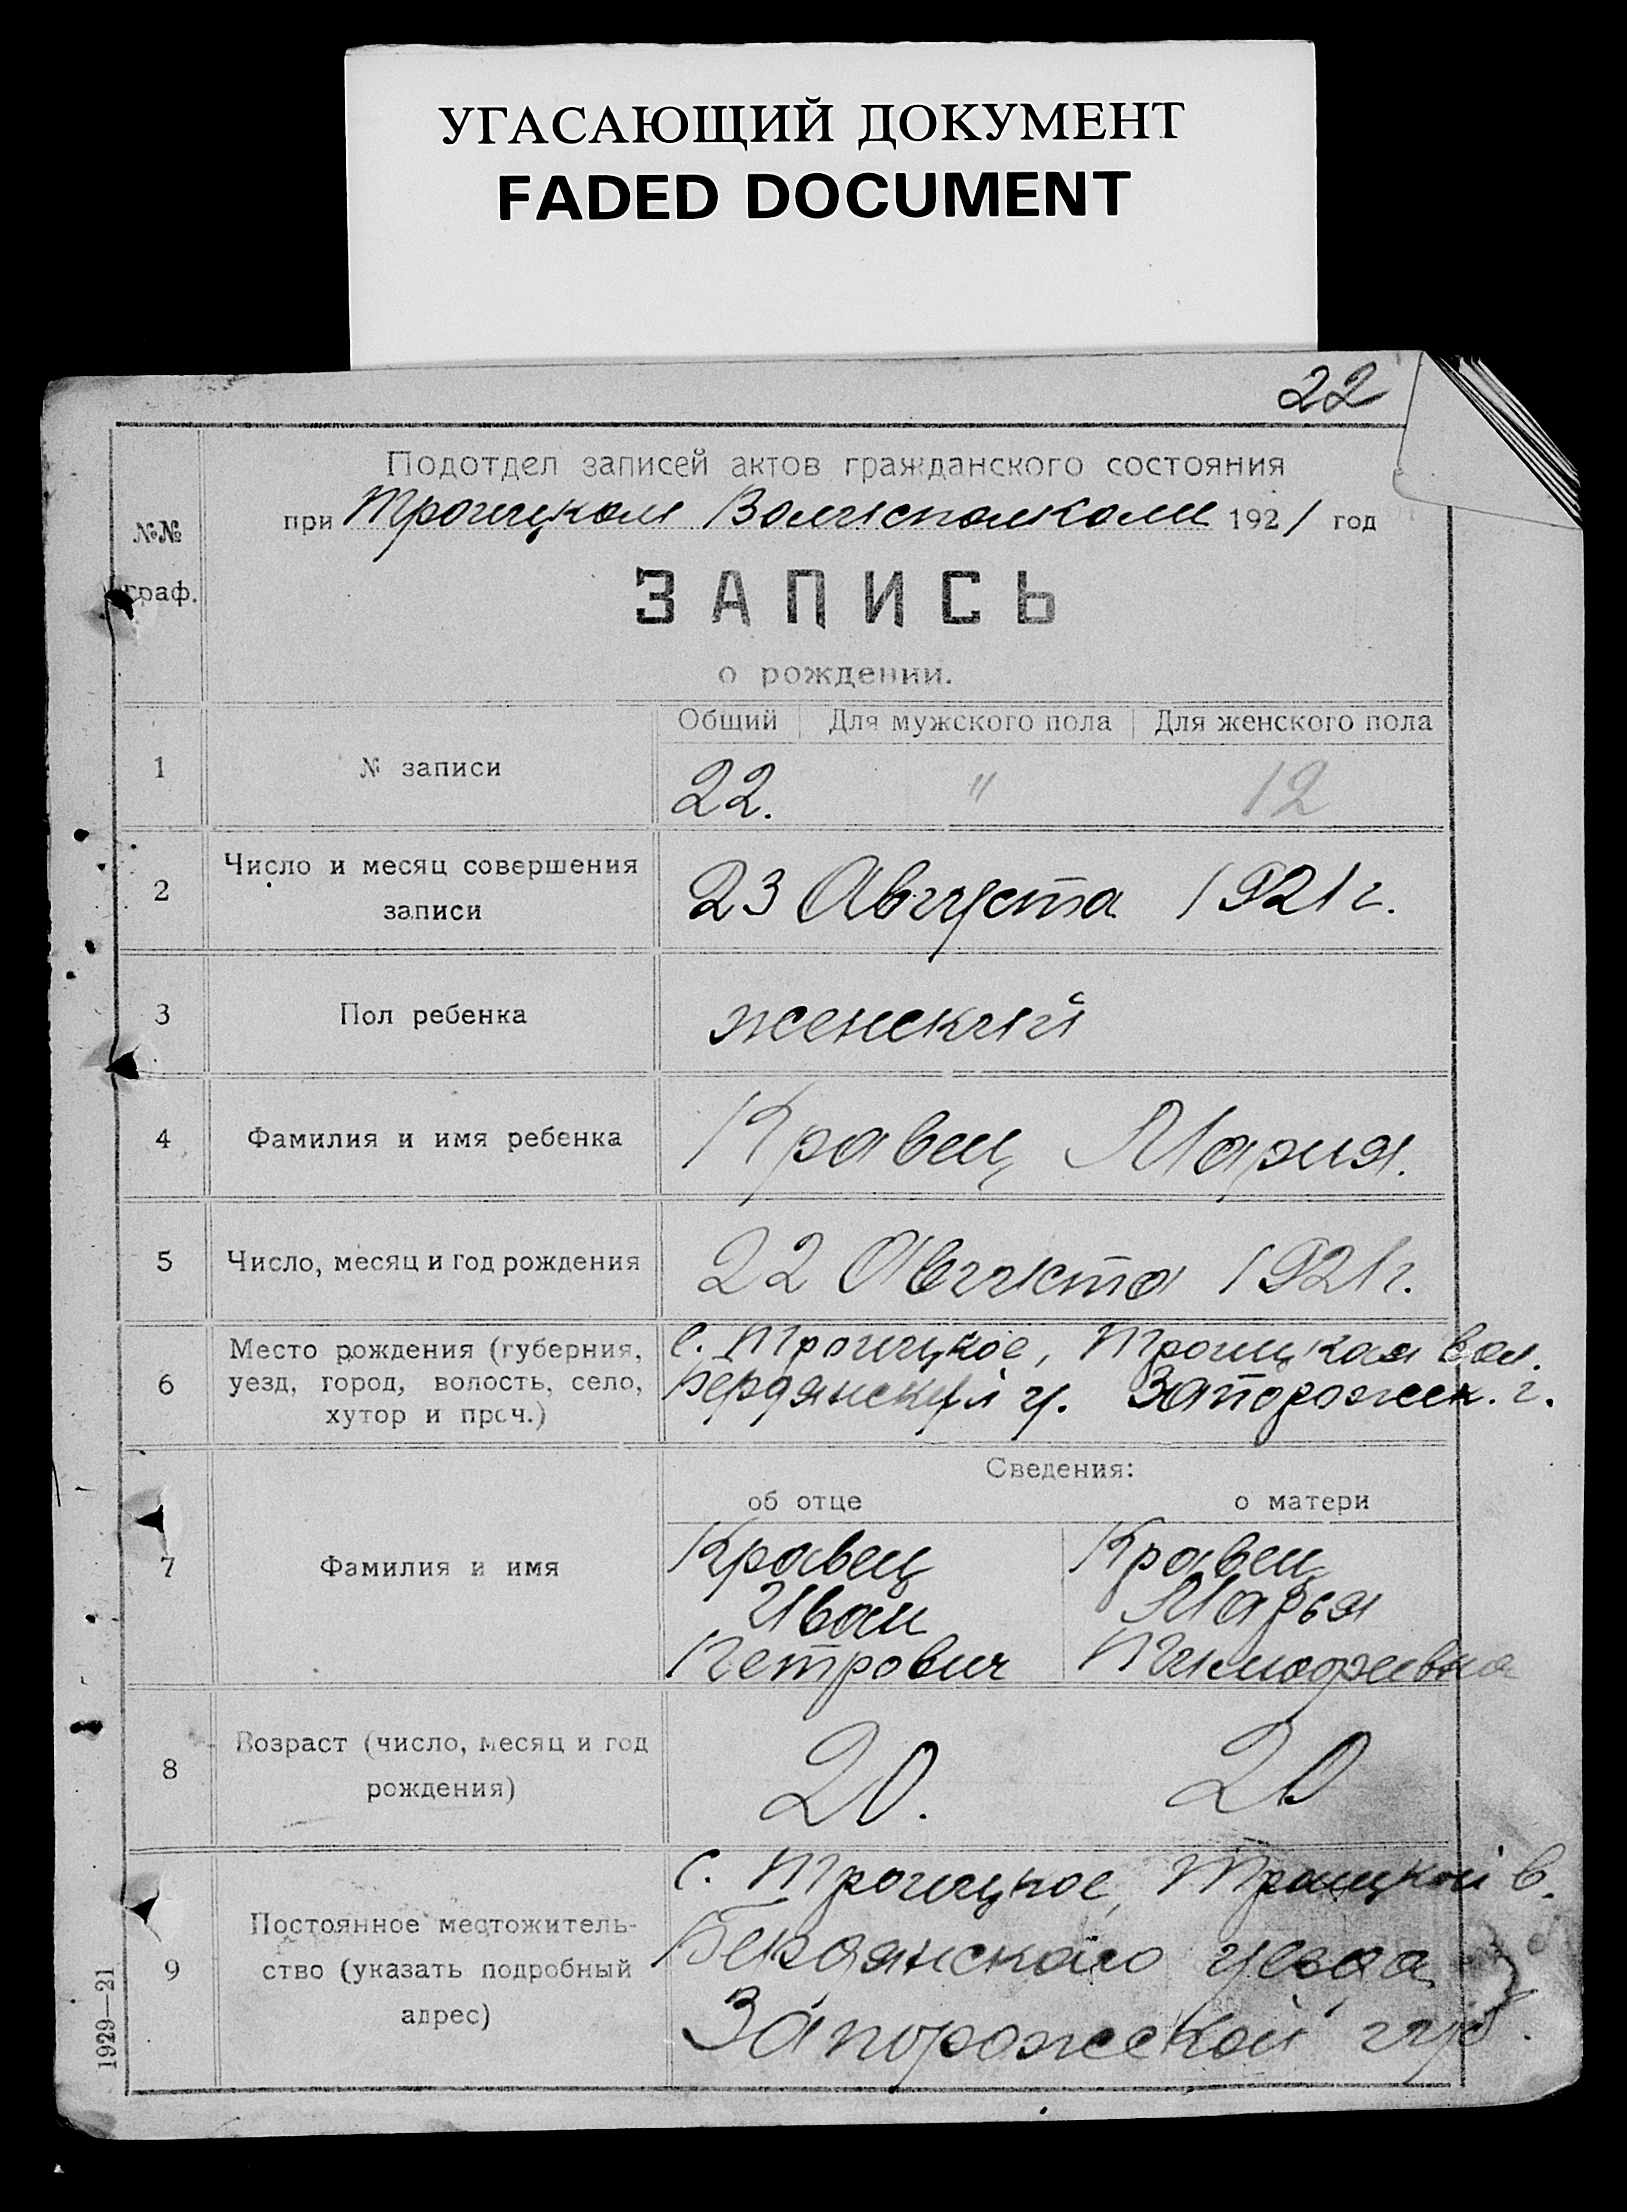 УГАСАЮЩИЙ ДОКУМЕНТ
FADED DOCUMENT
22
Подотдел записей актов гражданского состояния
при Троицком Волисполкоме 1921 год
№№
граф.
ЗАПИСЬ
о рождении.
Общий Для мужского пола Для женского пола
1 № записи 22. " 12
2 Число и месяц совершения
записи
23 Августа 1921 г.
3 Пол ребенка женский
4 Фамилия и имя ребенка Кравец Мария.
5 Число, месяц и год рождения 22 Августа 1921 г.
6 Место рождения (губерния,
уезд, город, волость, село,
хутор и проч.)
с. Троицкое, Троицкая вол.
Бердянский у. Запорожск. г.
Сведения:
об отце о матери
7 Фамилия и имя
Кравец
Иван
Петрович
Кравец
Марья
Тимофеевна
8 Возраст (число, месяц и год
рождения)
20. 20
9 Постоянное местожитель-
ство (указать подробный
адрес)
с. Троицкое, Троицкой в.
Бердянского уезда
Запорожской губ.
1929—21